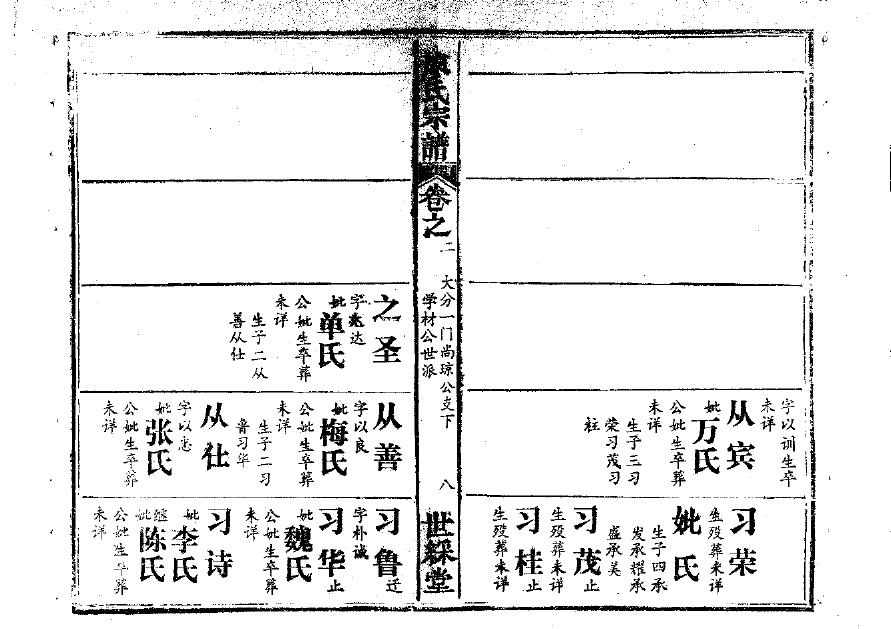 字以训生卒
未详
从宾
妣万氏
公妣生卒葬
未详
生子三习
荣习茂习
柱
习荣
鱼殁葬未详
妣氏
生子四承
发承耀承
盛承美
习茂止
生殁葬未详
习桂止
生殁葬未详
氏宗譜
卷之二
大分一门尚琼公支下
学材公世派
八
世綵堂
之圣
字兆达
妣单氏
公妣生卒葬
未详
生子二从
善从仕
从善
字以良
妣梅氏
公妣生卒葬
未详
生子二习
鲁习华
从仕
字以忠
妣张氏
公妣生卒葬
未详
习鲁迁
字朴诚
习华止
妣魏氏
公妣生卒葬
未详
习诗
妣李氏
继妣陈氏
公妣生卒葬
未详